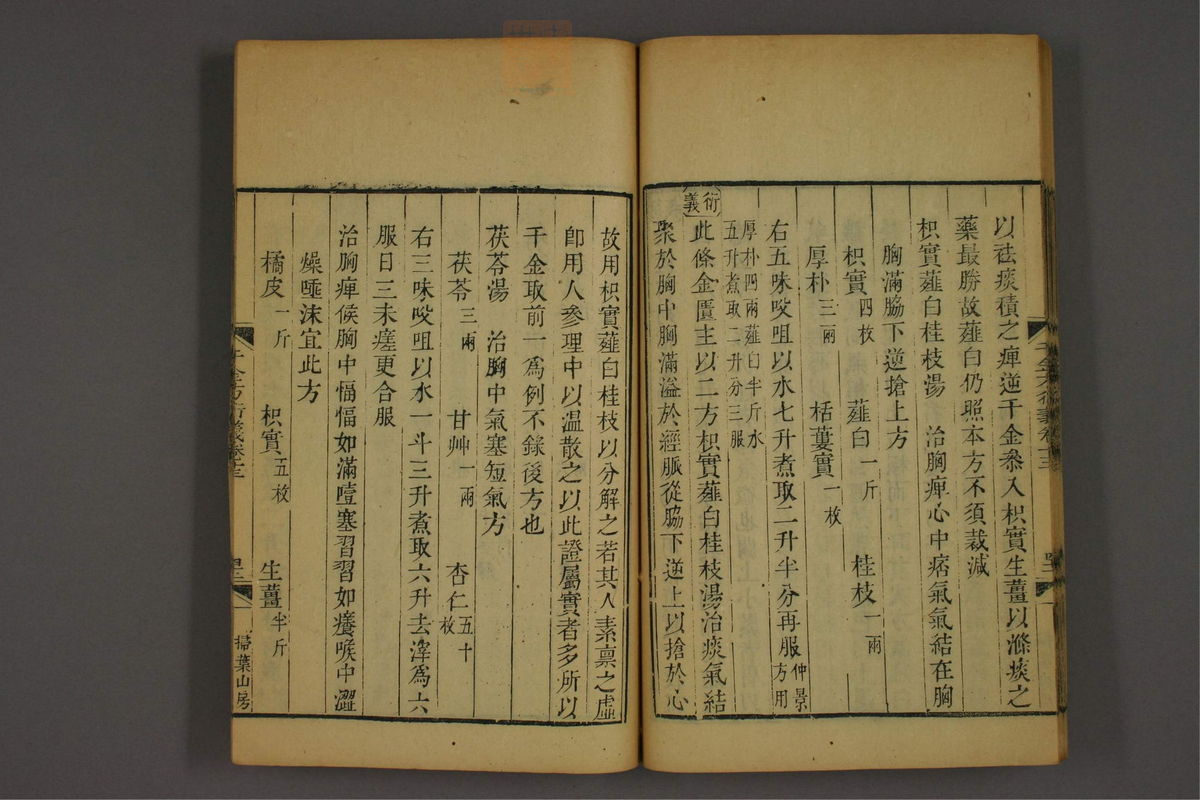 以祛痰積之痺逆千金叅入枳實生薑以滌痰之
藥最勝故薤白仍照本方不須裁減
枳實薤白桂枝湯 治胸痺心中痞氣氣結在胸
胸滿脇下逆搶上方
枳實四枚 薤白一斤 桂枝一兩
厚朴三兩 栝蔞實一枚
右五味㕮咀以水七升煮取二升半分再服仲景方用
厚朴四兩薤白半斤水五升煮取二升分三服
衍義 此條金匱主以二方枳實薤白桂枝湯治痰氣結
聚於胸中胸滿溢於經脈從脇下逆上以搶於心
故用枳實薤白桂枝以分解之若其人素稟之虛
卽用人參理中以溫散之以此證屬實者多所以
千金取前一爲例不錄後方也
茯苓湯 治胸中氣塞短氣方
茯苓三兩 甘艸一兩 杏仁五十枚
右三味㕮咀以水一斗三升煮取六升去滓爲六
服日三未瘥更合服
治胸痺候胸中愊愊如滿噎塞習習如癢喉中澀
燥唾沫宜此方
橘皮一斤 枳實五枚 生薑半斤
千金方衍義卷十三
掃葉山房